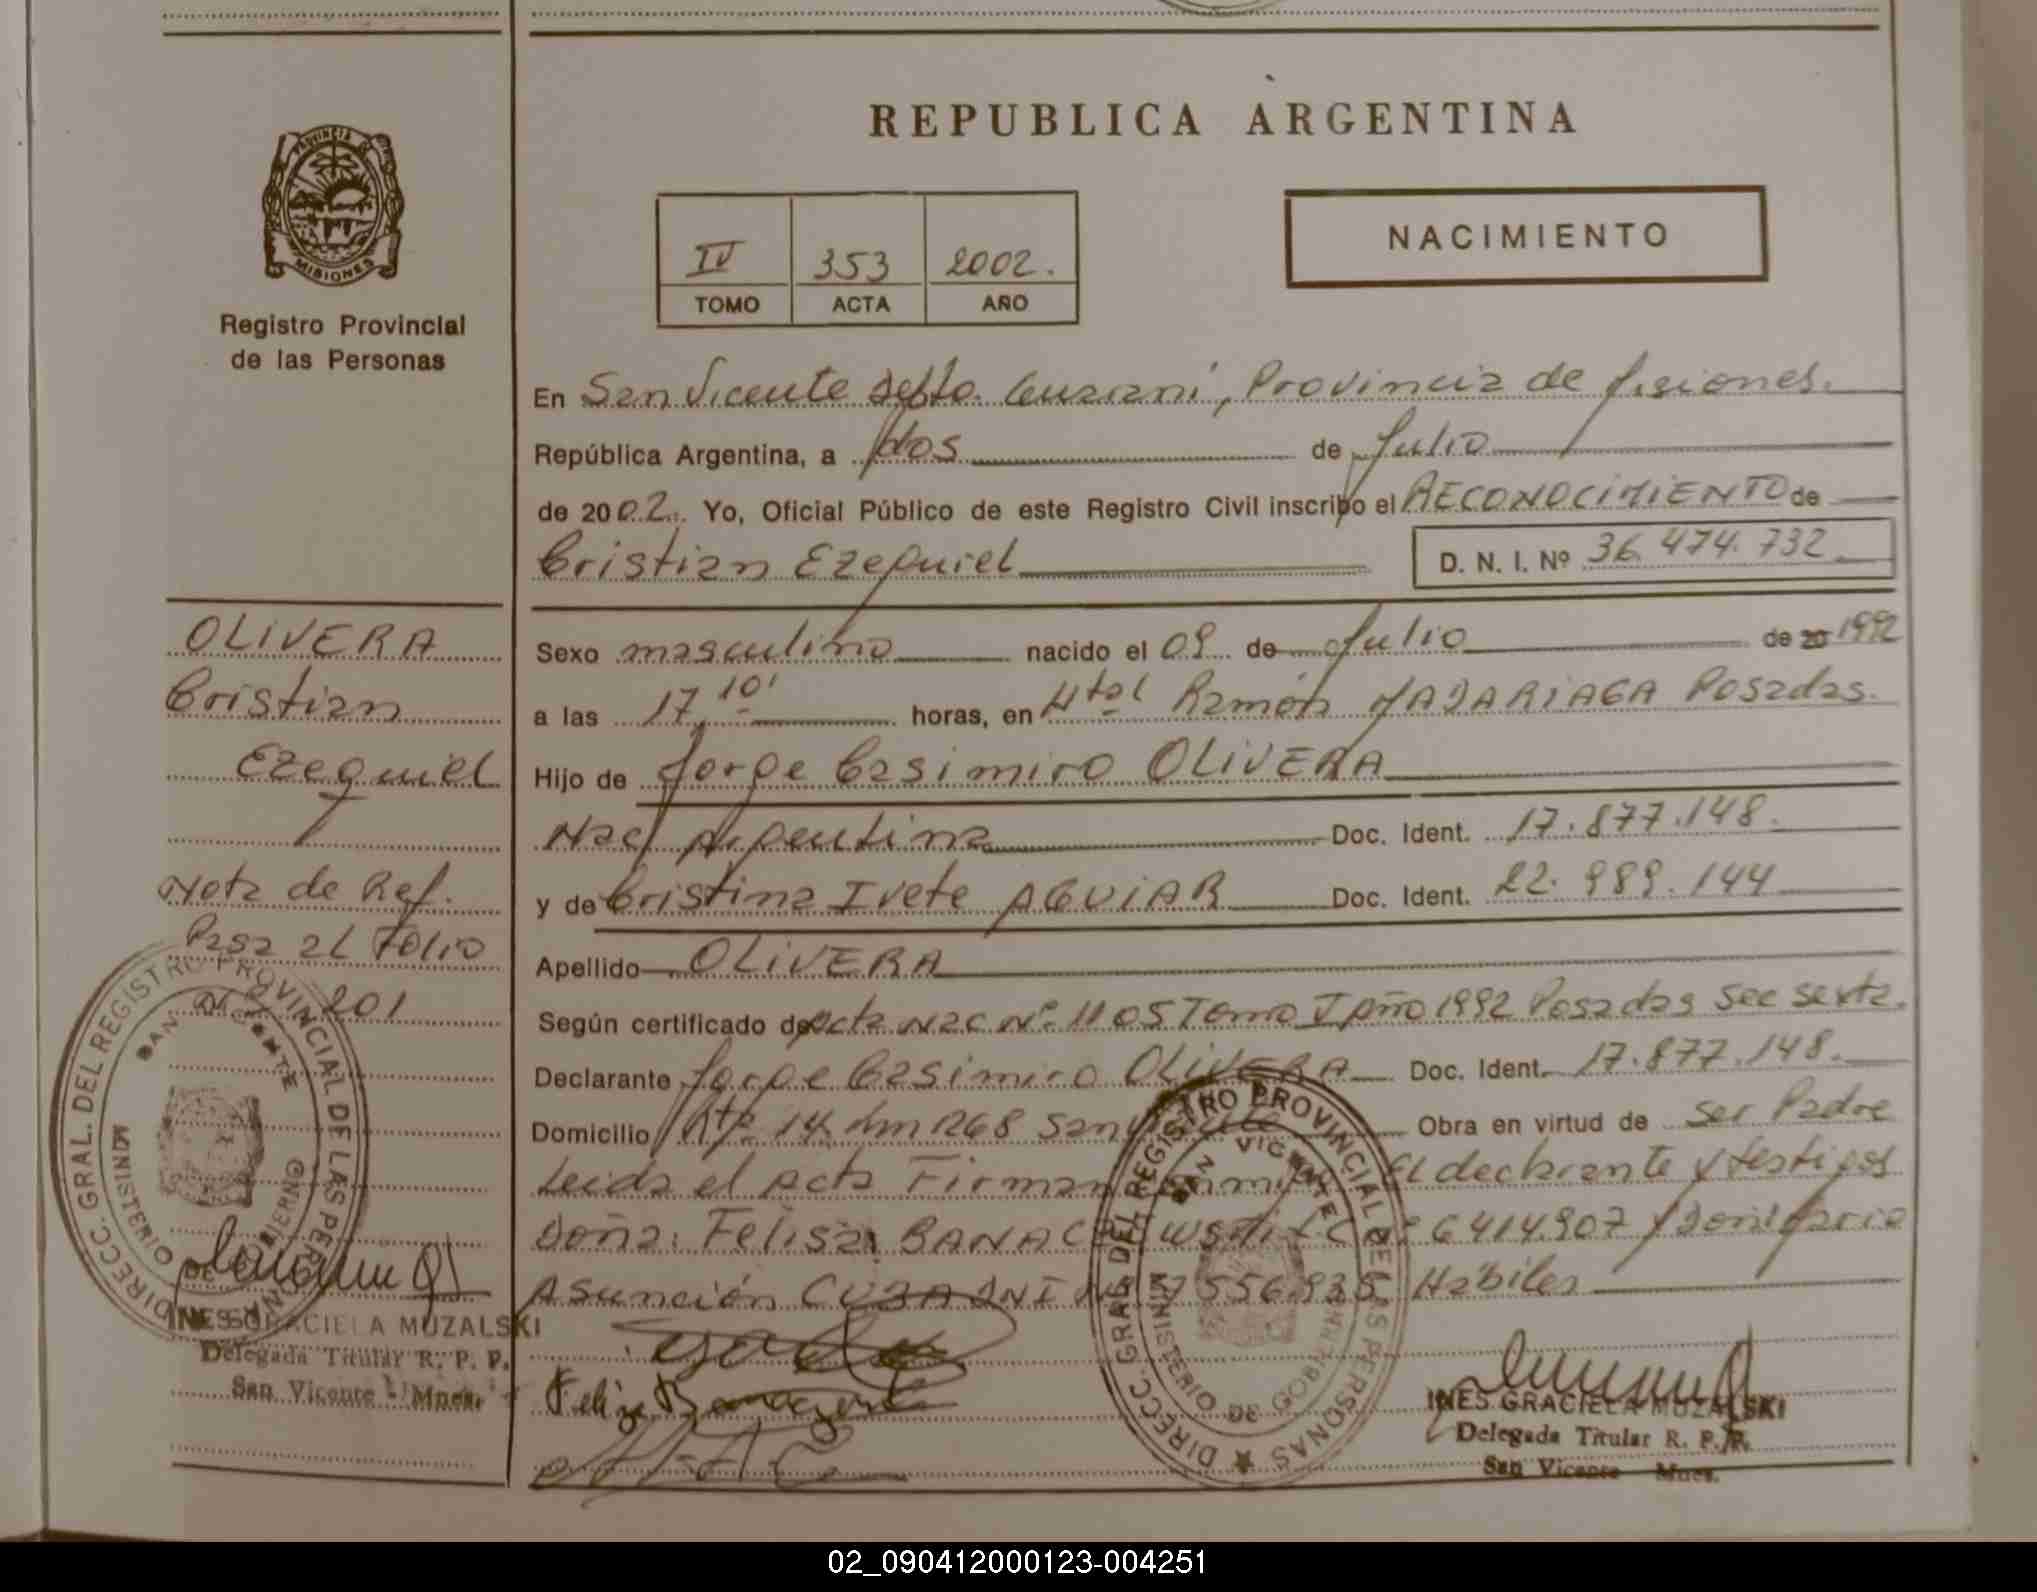 REPUBLICA ARGENTINA
PROVINCIA DE
MISIONES
Registro Provincial
de las Personas
IV 353 2002.
TOMO ACTA AÑO
NACIMIENTO
En San Vicente Depto. Guaraní, Provincia de Misiones.
República Argentina, a dos de Julio
de 2002. Yo, Oficial Público de este Registro Civil inscribo el RECONOCIMIENTO de
Cristian Ezequiel D. N. I. Nº 36.474.732
Sexo masculino nacido el 09 de Julio de 20 1992
a las 17,10' horas, en Htal Ramón MADARIAGA Posadas.
Hijo de Jorge Casimiro OLIVERA
Nac. Argentina Doc. Ident. 17.877.148.
y de Cristina Ivete AGUIAR Doc. Ident. 22.989.144
Apellido OLIVERA
Según certificado de Acta Nac Nº 1105 Tomo I Año 1992 Posadas Sec sexta.
Declarante Jorge Casimiro OLIVERA Doc. Ident. 17.877.148.
Domicilio Rta 14 km 268 San Vicente Obra en virtud de ser Padre
Leida el Acta Firman El declarante y testigos
Doña: Felisa 6414.907 y
Asunción 556.935 Habiles
OLIVERA
Cristian
Ezequiel
Nota de Ref.
Pasa al Folio
Nº 201
DIRECC. GRAL. DEL REGISTRO PROVINCIAL DE LAS PERSONAS
SAN VICENTE
MINISTERIO DE GOBIERNO
INES GRACIELA MUZALSKI
Delegada Titular R. P. P.
San Vicente - Mnes.
DIRECC. GRAL. DEL REGISTRO PROVINCIAL DE LAS PERSONAS
SAN VICENTE
MINISTERIO DE GOBIERNO
INES GRACIELA MUZALSKI
Delegada Titular R. P. P.
San Vicente - Mnes.
02_090412000123-004251